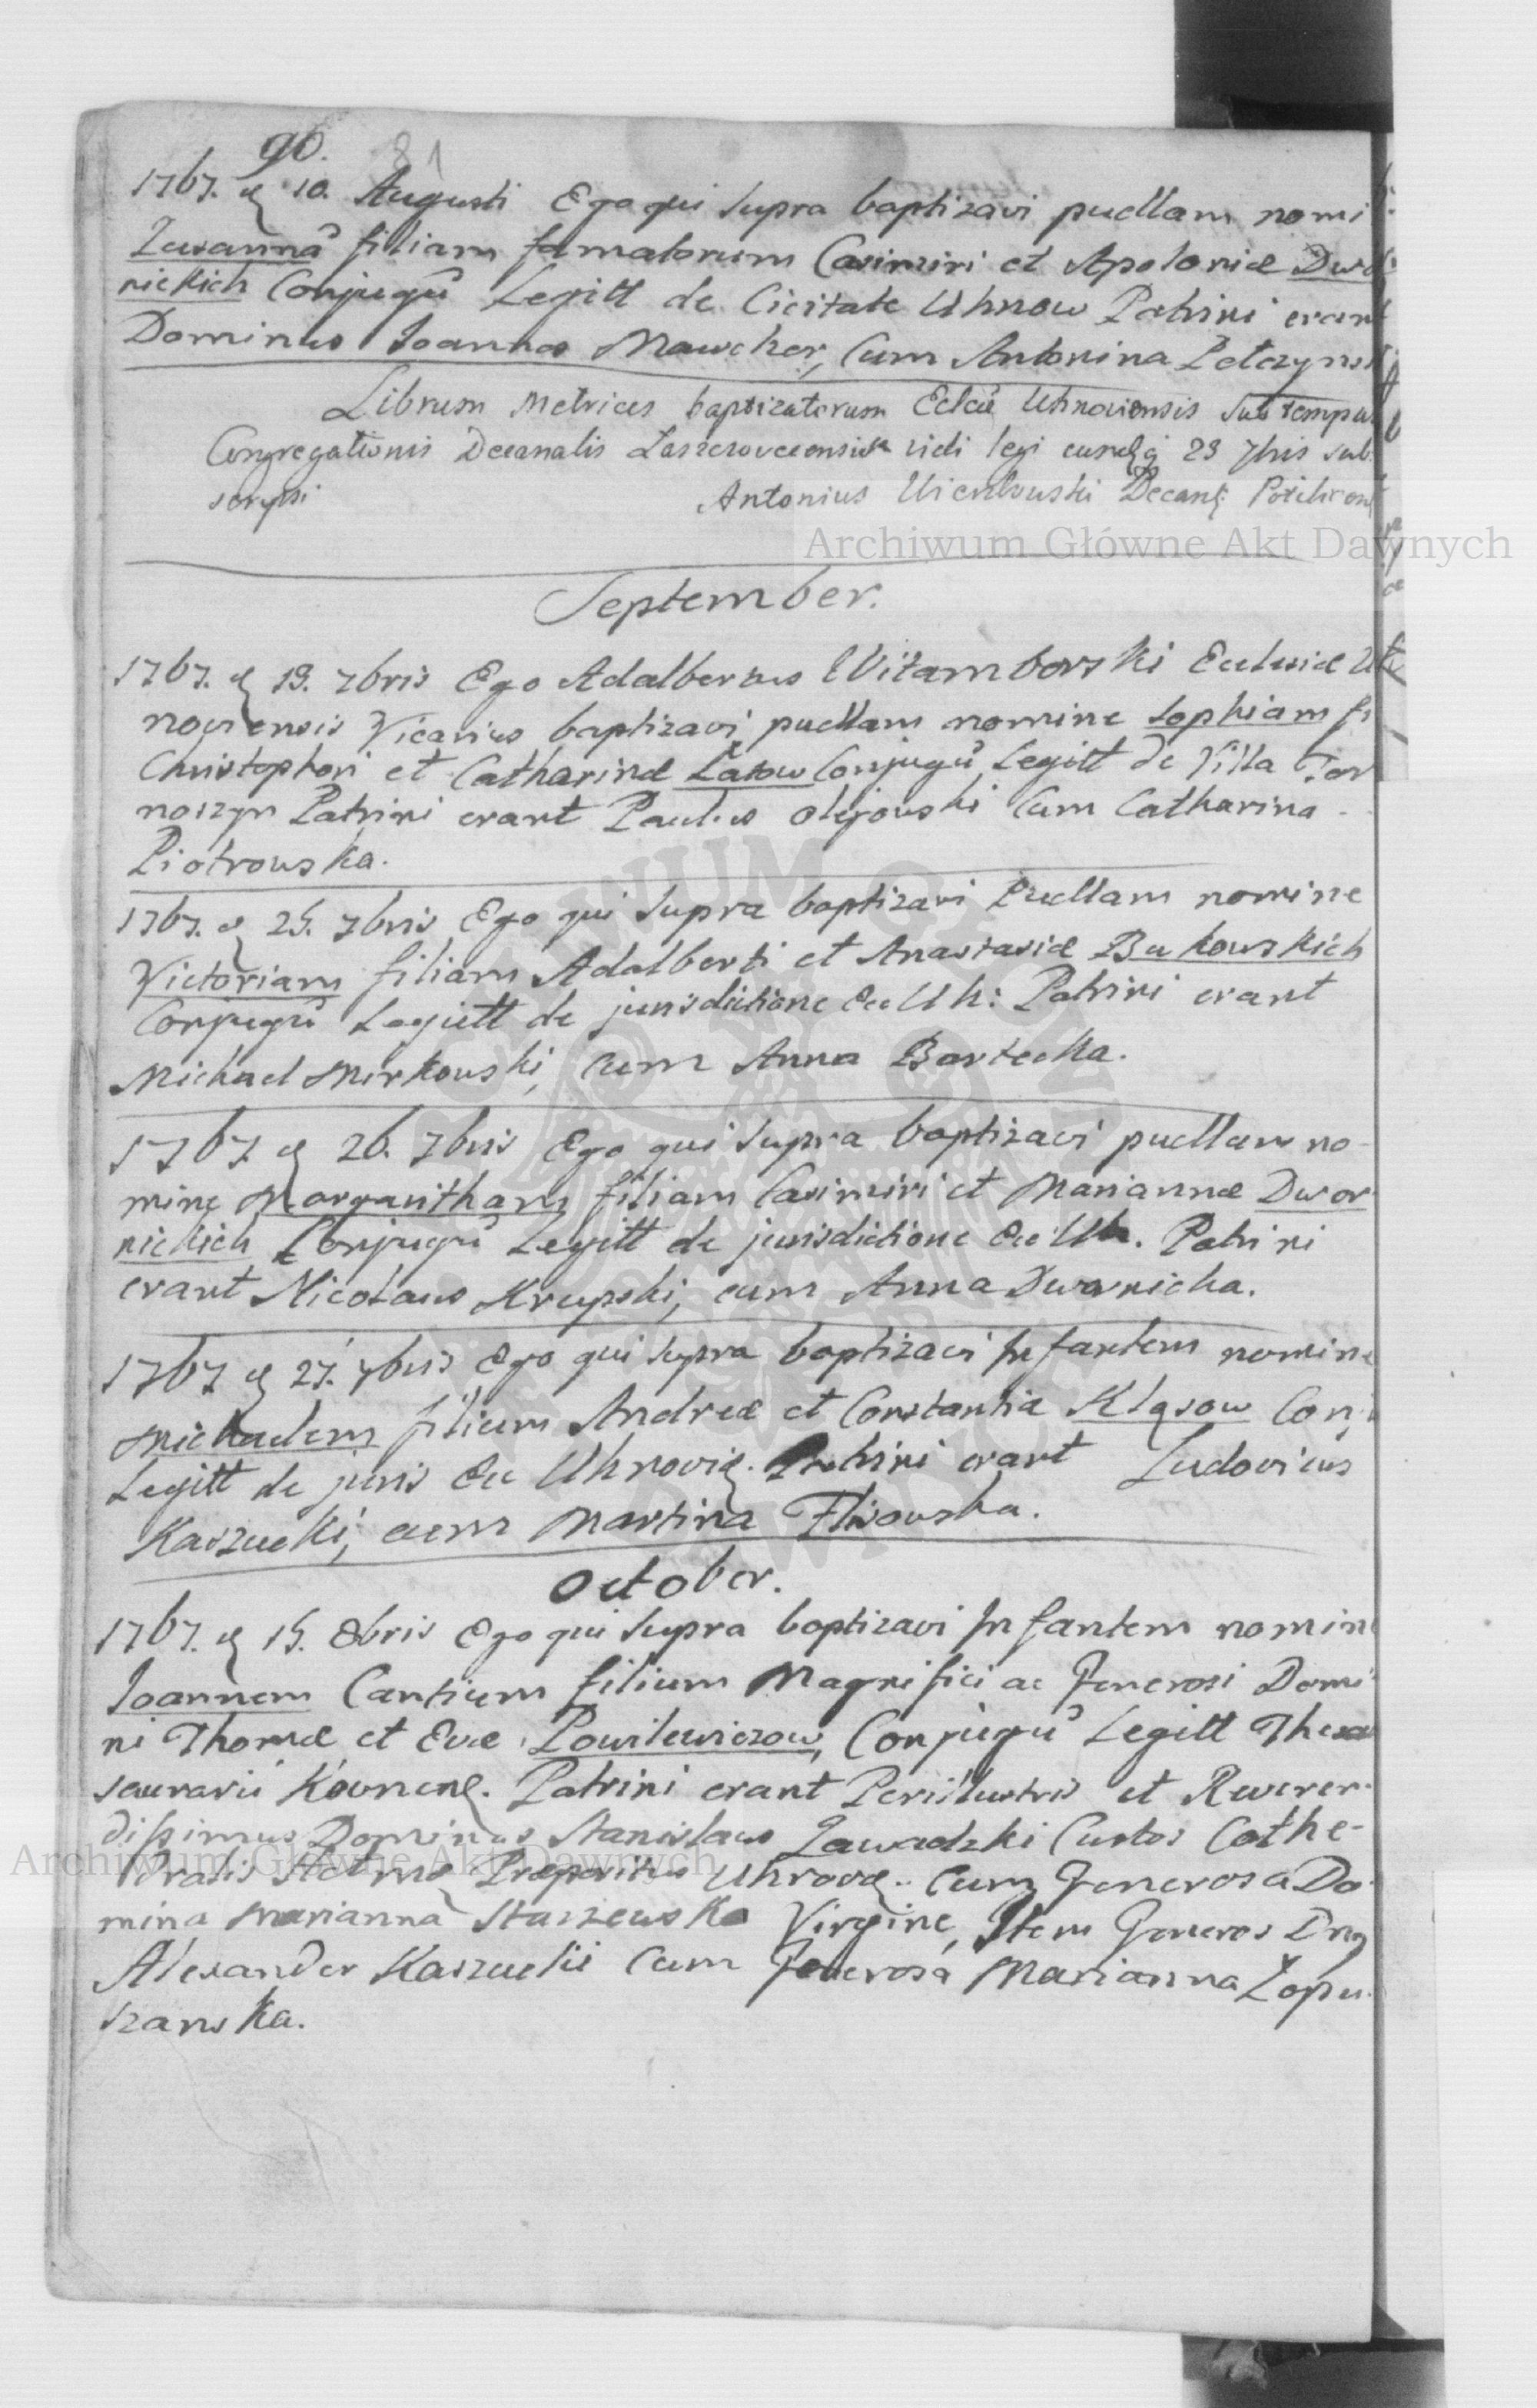 90. 81
1767. d 10. Augusti Ego qui supra baptizavi puellam nomi
Zusannã filiam famatorum Casimiri et Apoloniæ Dwor
nickich Conjugũ Legitt de Civitate Uhnow Patrini erant
Dominus Joannes Mawcher, cum Antonina
Librum Metrices baptizatorum Eclæ Uhnoviensis sub tempus
Congregationis Decanalis vidi legi 23 7bris sub
scripsi Antonius Decanq
Archiwum Główne Akt Dawnych
September.
1767. d 19. 7bris Ego Adalbertus Witamborski Eclesiæ Uh
noviensis Vicarius baptizavi puellam nomine Sophiam fi
Christophori et Catharinæ Łasow Conjugũ Legitt de Villa Tar
noszyn Patrini erant Paulus Olejowski cum Catharina
Piotrowska.
1767. d 25. 7bris Ego qui supra baptizavi Puellam nomine
Victoriam filiam Adalberti et Anastasiæ Bukowskich
Conjugũ Legitt de jurisdictione Ec Uh: Patrini erant
Michael Mirkowski, cum Anna Bartecka.
1767 d 26. 7bris Ego qui supra baptizavi puellam no-
mine Margaritham filiam Casimiri et Mariannæ Dwor
nickich Conjugũ Legitt de jurisdictione Ec Uh. Patrini
erant Nicolaus Krupski, cum Anna Dwornicka.
1767 d 27. 7bris Ego qui supra baptizavi Infantem nomine
Michaelem filium Andreæ et Constantiæ Kląsow Conj
Legitt de juris Ec Uhnovię. Patrini erant Ludovicus
Kaszucki, cum Martina
October.
1767. d 15. 8bris Ego qui supra baptizavi Infantem nomine
Joannem Cantium filium Magnifici ac Generosi Domi
ni Thomæ et Evæ Powilewiczow, Conjugũ Legitt Thesau
saurarii Patrini erant Perillustris et Reveren-
dissimus Dominus Stanislaus Zawadzki Custos Cathe-
dralis Præpositus Uhnovę. cum Generosa Do
mina Marianna Staszewska Virgine, Item Generos Dnꝰ
Alexander Kaszucki cum Generosa Marianna Łopu
szanska.
Archiwum Główne Akt Dawnych